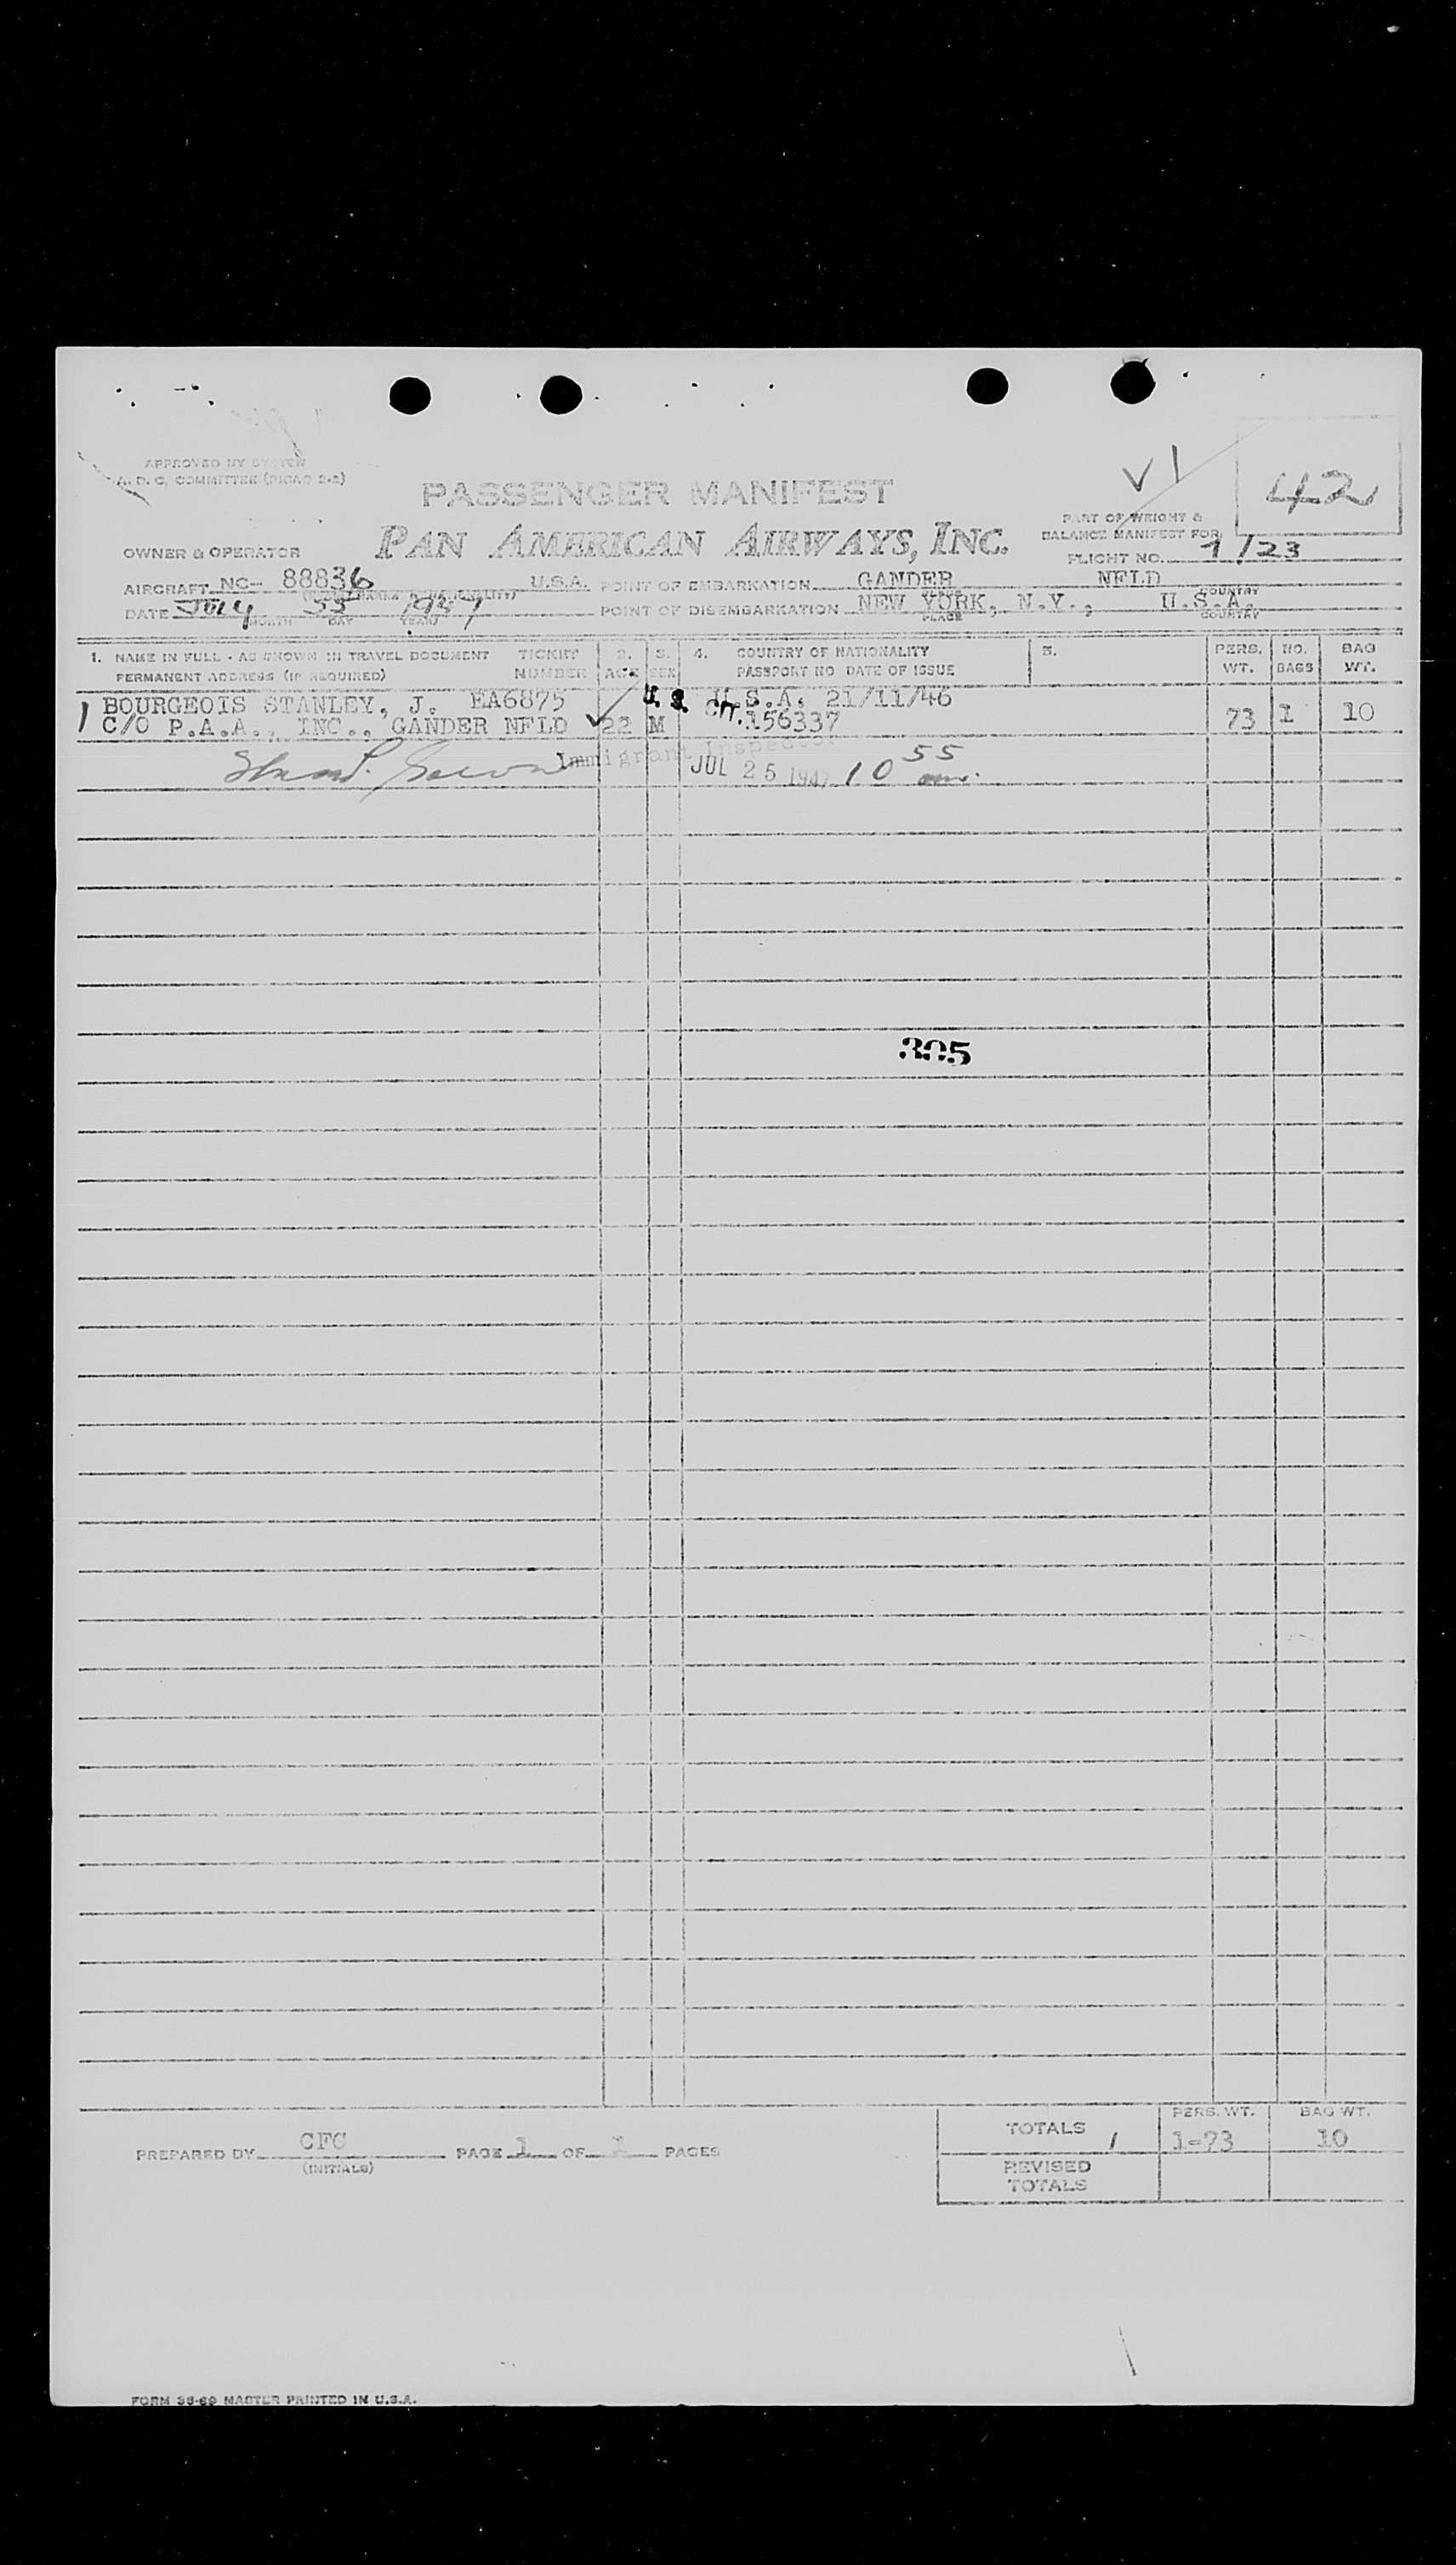 APPROVED BY SYSTEM
A. D. C. COMMITTEE (PICAO 2-2)
PASSENGER MANIFEST
V1
42
PAN AMERICAN AIRWAYS, INC.
PART OF WEIGHT &
BALANCE MANIFEST FOR
OWNER & OPERATOR
FLIGHT NO. 1/23
AIRCRAFT NC- 88836 U.S.A. POINT OF EMBARKATION GANDER NFLD
COUNTRY
DATE July 1947 POINT OF DISEMBARKATION NEW YORK, N.Y., U.S.A.
MONTH DAY YEAR PLACE COUNTRY
1. NAME IN FULL - AS SHOWN IN TRAVEL DOCUMENT TICKET 2. 3. 4. COUNTRY OF NATIONALITY 5. PERS. NO. BAG
PERMANENT ADDRESS (IF REQUIRED) NUMBER AGE SEX PASSPORT NO DATE OF ISSUE WT. BAGS WT.
1 BOURGEOIS STANLEY, J. EA6875 U. S. U.S.A. 21/11/46
C/O P.A.A., INC., GANDER NFLD 22 M CIT. 156337 73 1 10
Immigrant Inspector
JUL 25 1947 10 55 am.
305
TOTALS 1 PERS. WT. BAG WT.
1-73 10
PREPARED BY CFC PAGE 1 OF 1 PAGES
(INITIALS)
REVISED
TOTALS
FORM 36-69 MASTER PRINTED IN U.S.A.